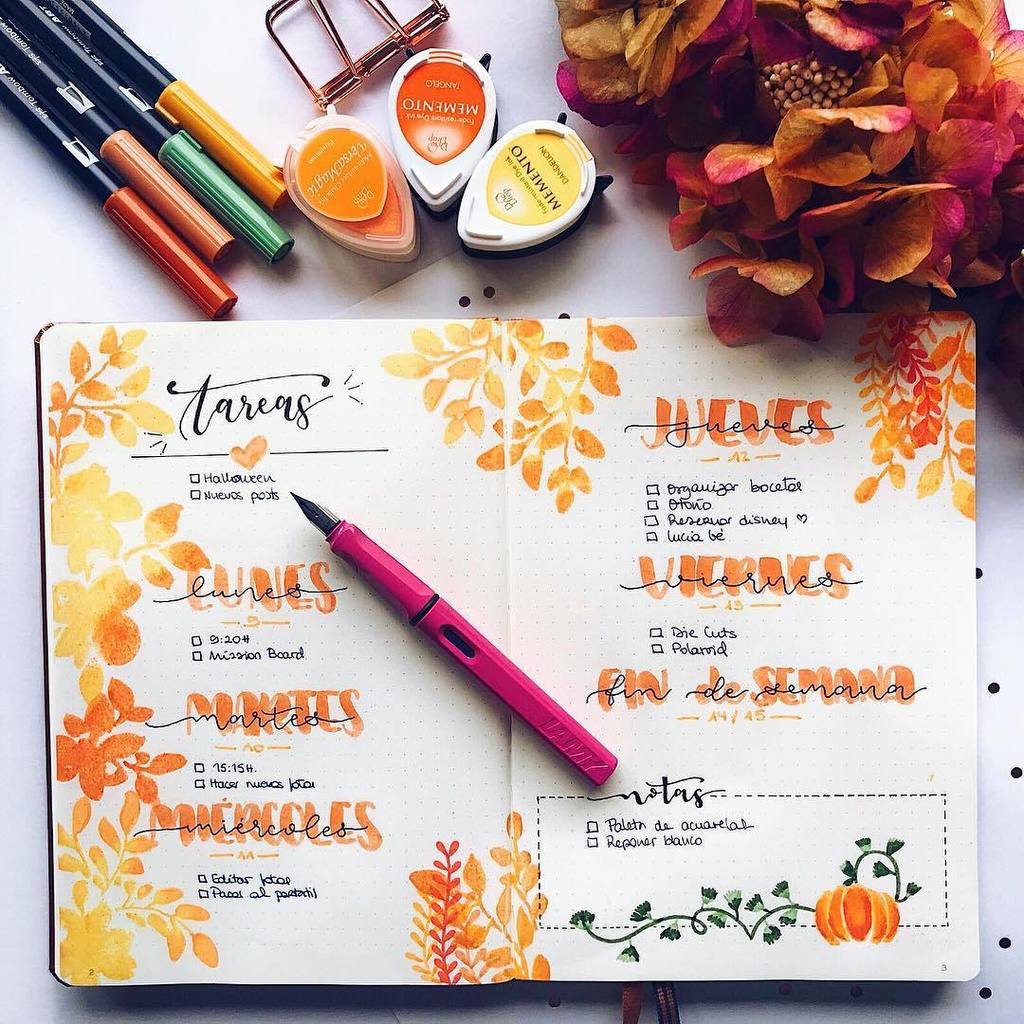 Tombow ABT
MEMENTO
TANGELO
Fade-resistant Dye Ink
VersaMagic
MEMENTO
DANDELION
Fade-resistant Dye Ink
tareas
Halloween
Nuevos posts
LUNES
lunes
9
9:20H
Mission Board
MARTES
martes
10
15:15H.
Hacer nuevas fotos
MIÉRCOLES
miércoles
11
Editar fotos
Pasar al portátil
2
JUEVES
jueves
12
Organizar bocetos
Otoño
Reservar disney ♡
Lucía bé
VIERNES
viernes
13
Die Cuts
Polaroid
FIN DE SEMANA
fin de semana
14/15
notas
Paleta de acuarelas
Reponer blanco
3
LAMY